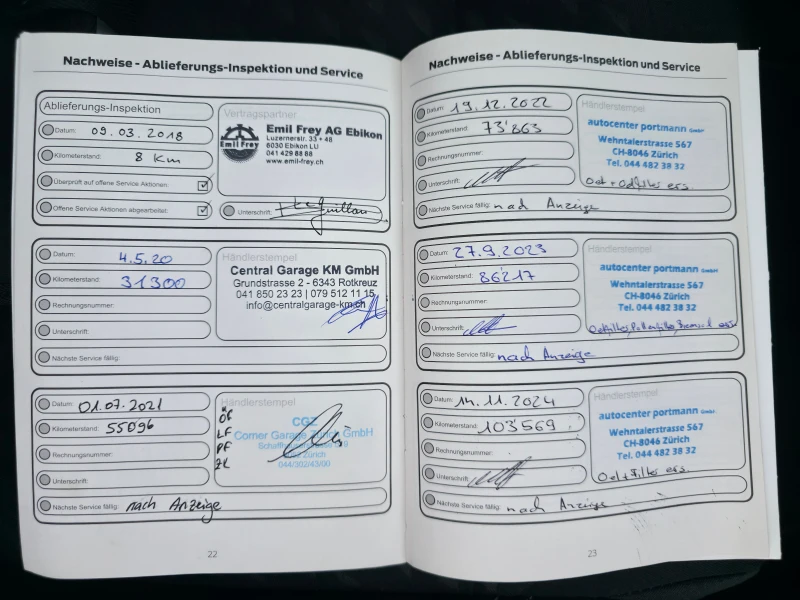 Nachweise - Ablieferungs-Inspektion und Service
Ablieferungs-Inspektion
Datum: 09.03.2018
Kilometerstand: 8 Km
Überprüft auf offene Service Aktionen:
Offene Service Aktionen abgearbeitet:
Vertragspartner
Emil Frey
Emil Frey AG Ebikon
Luzernerstr. 33 + 48
6030 Ebikon LU
041 429 88 88
www.emil-frey.ch
Unterschrift:
Datum: 4.5.20
Kilometerstand: 31300
Rechnungsnummer:
Unterschrift:
Nächste Service fällig:
Händlerstempel
Central Garage KM GmbH
Grundstrasse 2 - 6343 Rotkreuz
041 850 23 23 | 079 512 11 15
info@centralgarage-km.ch
Datum: 01.07.2021
Kilometerstand: 55096
Rechnungsnummer:
Unterschrift:
Nächste Service fällig: nach Anzeige
ÖF
LF
PF
ZK
Händlerstempel
CGZ
Corner Garage Zürich GmbH
Zürich
044/302/43/00
22
Nachweise - Ablieferungs-Inspektion und Service
Datum: 19.12.2022
Kilometerstand: 73'863
Rechnungsnummer:
Unterschrift:
Nächste Service fällig: nach Anzeige
Händlerstempel
autocenter portmann GmbH
Wehntalerstrasse 567
CH-8046 Zürich
Tel. 044 482 38 32
Oel + Oelfilter ers.
Datum: 27.9.2023
Kilometerstand: 86'217
Rechnungsnummer:
Unterschrift:
Nächste Service fällig: nach Anzeige
Händlerstempel
autocenter portmann GmbH
Wehntalerstrasse 567
CH-8046 Zürich
Tel. 044 482 38 32
Datum: 14.11.2024
Kilometerstand: 103'569
Rechnungsnummer:
Unterschrift:
Nächste Service fällig: nach Anzeige
Händlerstempel
autocenter portmann GmbH
Wehntalerstrasse 567
CH-8046 Zürich
Tel. 044 482 38 32
Oel + Filter ers.
23